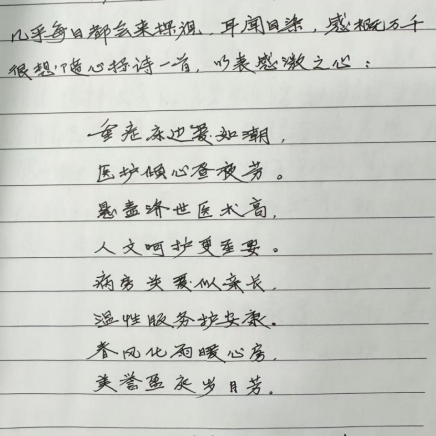 几乎每日都会来探视，耳闻目染，感概万千
很想随心抒诗一首，以表感激之心：
重症床边爱如潮，
医护倾心昼夜劳。
悬壶济世医术高，
人文呵护更重要。
病房关爱似亲长，
温性服务护安康。
春风化雨暖心房，
美誉盈永岁月芳。